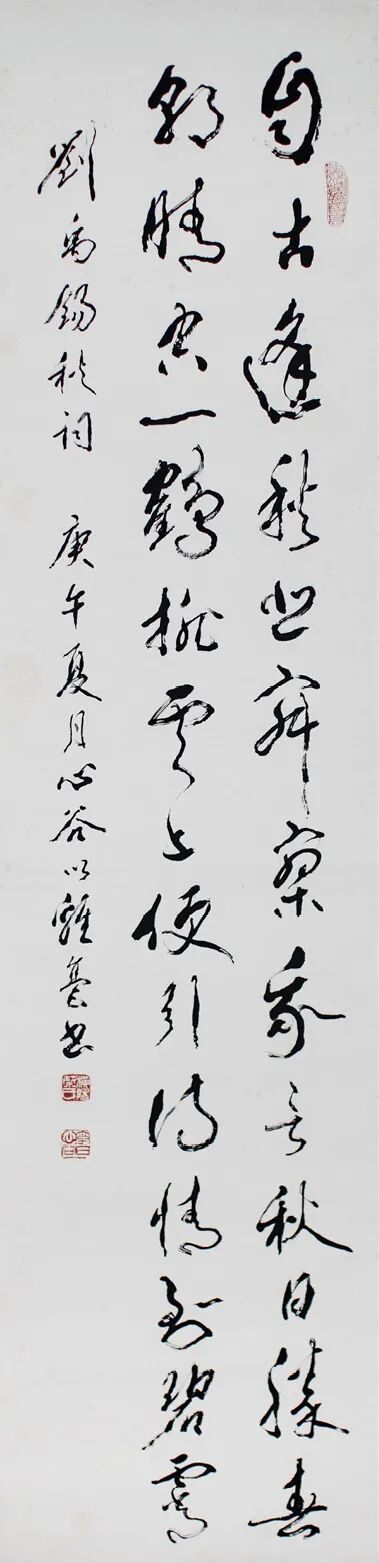 自古逢秋悲寂寥我言秋日勝春
朝晴空一鶴排雲上便引詩情到碧霄
劉禹錫秋詞 庚午夏月心谷以雞毫書